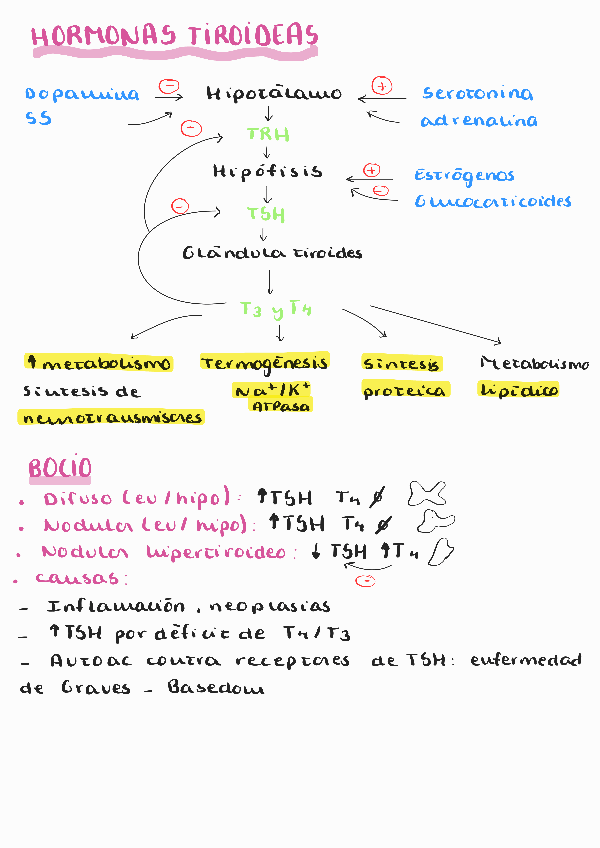 HORMONAS TIROIDEAS
Dopamina ⊖ → Hipotálamo ← ⊕ Serotonina
SS adrenalina
⊖ TRH
Hipófisis ⊕ Estrógenos
⊖ Glucocorticoides
⊖ TSH
Glándula tiroides
T3 y T4
↑ metabolismo Termogénesis Síntesis Metabolismo
Síntesis de Na+/K+ proteica lipídico
neurotransmisores ATPasa
BOCIO
• Difuso (eu/hipo): ↑TSH T4 ∅
• Nodular (eu/hipo): ↑TSH T4 ∅
• Nodular hipertiroideo: ↓ TSH ↑T4
⊖
• causas:
- Inflamación, neoplasias
- ↑TSH por déficit de T4/T3
- Autoac contra receptores de TSH: enfermedad
de Graves - Basedow